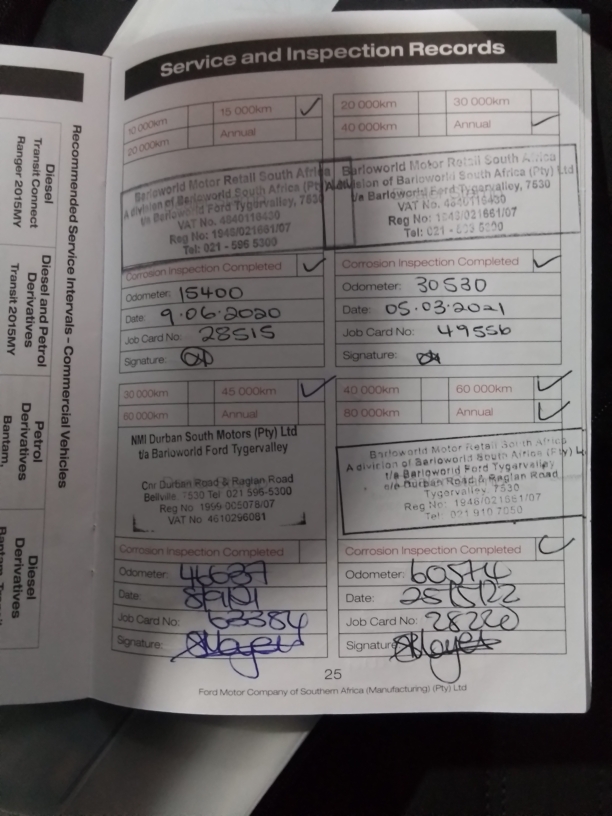 Service and Inspection Records
10 000km
15 000km
20 000km
Annual
Barloworld Motor Retail South Africa
A division of Barloworld South Africa
t/a Barloworld Ford Tygervalley, 7530
VAT No. 4840110430
Reg No: 1948/021661/07
Tel: 021 - 595 5300
Corrosion Inspection Completed
Odometer: 15400
Date: 9.06.2020
Job Card No: 28515
Signature:
20 000km
30 000km
40 000km
Annual
Barloworld Motor Retail South Africa
A division of Barloworld South Africa (Pty) Ltd
t/a Barloworld Ford Tygervalley, 7530
Reg No: 1948/021661/07
Corrosion Inspection Completed
Odometer: 30530
Date: 05.03.2021
Job Card No: 49556
Signature:
30 000km
45 000km
60 000km
Annual
NMI Durban South Motors (Pty) Ltd
t/a Barloworld Ford Tygervalley
Cnr Durban Road & Raglan Road
Bellville 7530 Tel 021 595-5300
Reg No 1999/005078/07
VAT No 4610296061
Corrosion Inspection Completed
Odometer: 46637
Date: 8/9/21
Job Card No: 63384
Signature:
40 000km
60 000km
80 000km
Annual
Barloworld Motor Retail South Africa
A division of Barloworld South Africa (Pty)
t/a Barloworld Ford Tygervalley
c/o Durban Road & Raglan Road
Tygervalley, 7530
Reg No: 1948/021661/07
Tel: 021 910 7050
Corrosion Inspection Completed
Odometer: 60574
Date: 25/5/22
Job Card No: 28220
Signature
25
Ford Motor Company of Southern Africa (Manufacturing) (Pty) Ltd
Recommended Service Intervals – Commercial Vehicles
Diesel
Transit Connect
Ranger 2015MY
Diesel and Petrol
Derivatives
Transit 2015MY
Petrol
Derivatives
Bantam,
Diesel
Derivatives